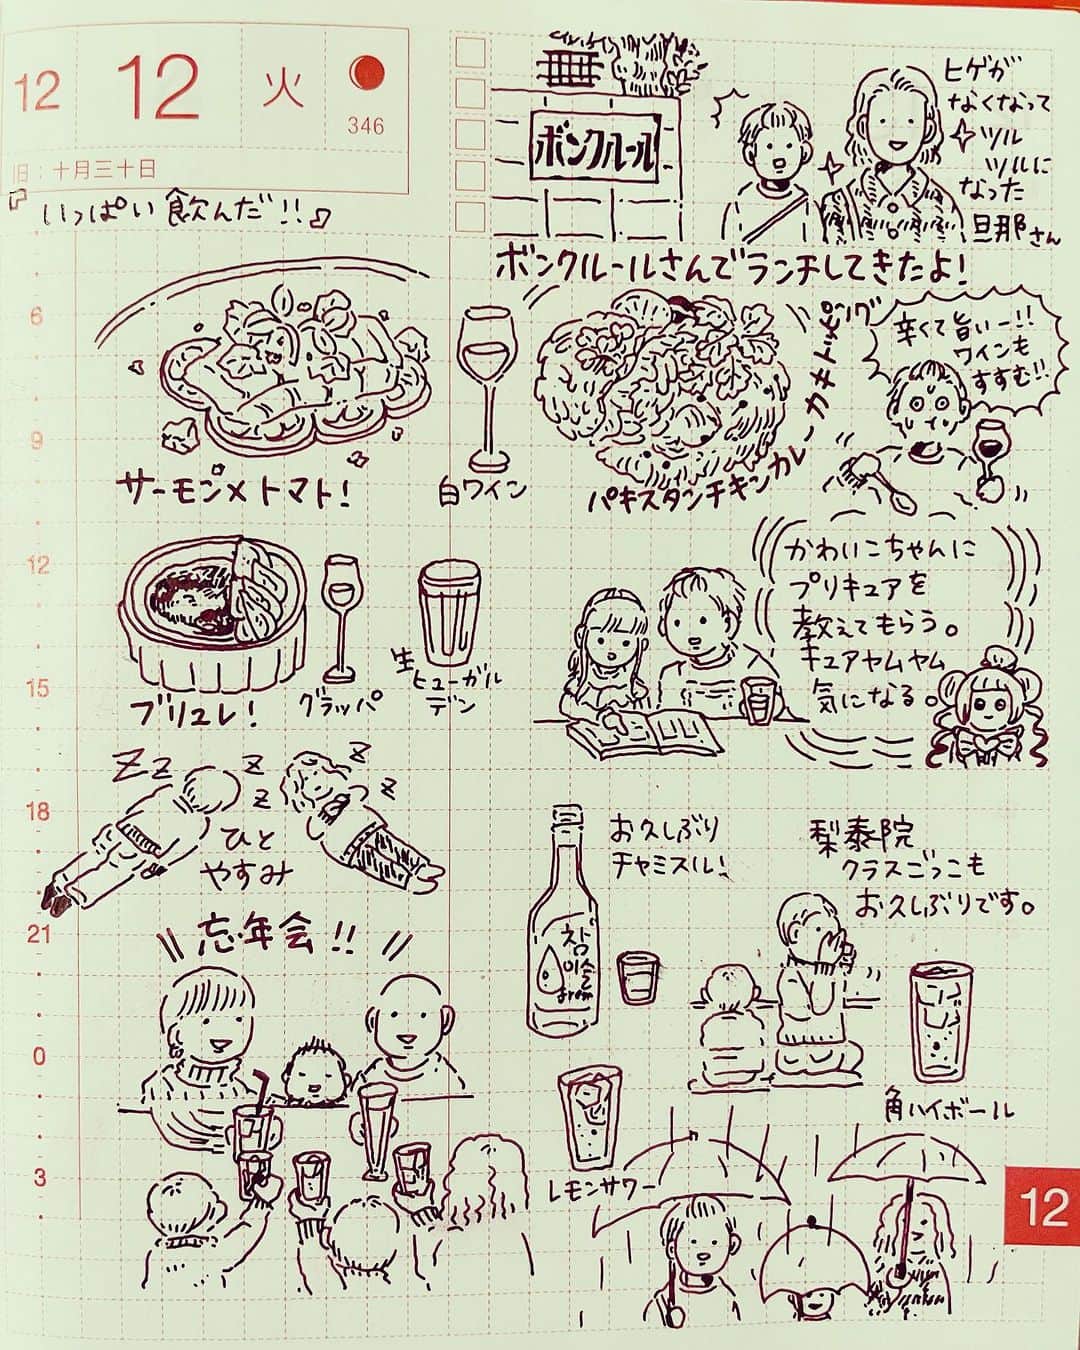 12
12
火
346
旧：十月三十日
いっぱい飲んだ!!
ボンクルール
ヒゲが
なくなって
ツル
ツルに
なった
旦那さん
ボンクルールさんでランチしてきたよ!
6
9
12
15
18
21
0
3
サーモン×トマト!
白ワイン
パキスタンチキンカレーカキトッピング
辛くて旨いー!!
ワインも
すすむ!!
ブリュレ!
グラッパ
生
ヒューガル
デン
かわいこちゃんに
プリキュアを
教えてもらう。
キュアヤムヤム
気になる。
Zz
z
z
z
z
ひと
やすみ
お久しぶり
チャミスル!
참
이슬
fresh
梨泰院
クラスごっこも
お久しぶりです。
忘年会!!
角ハイボール
レモンサワー
12